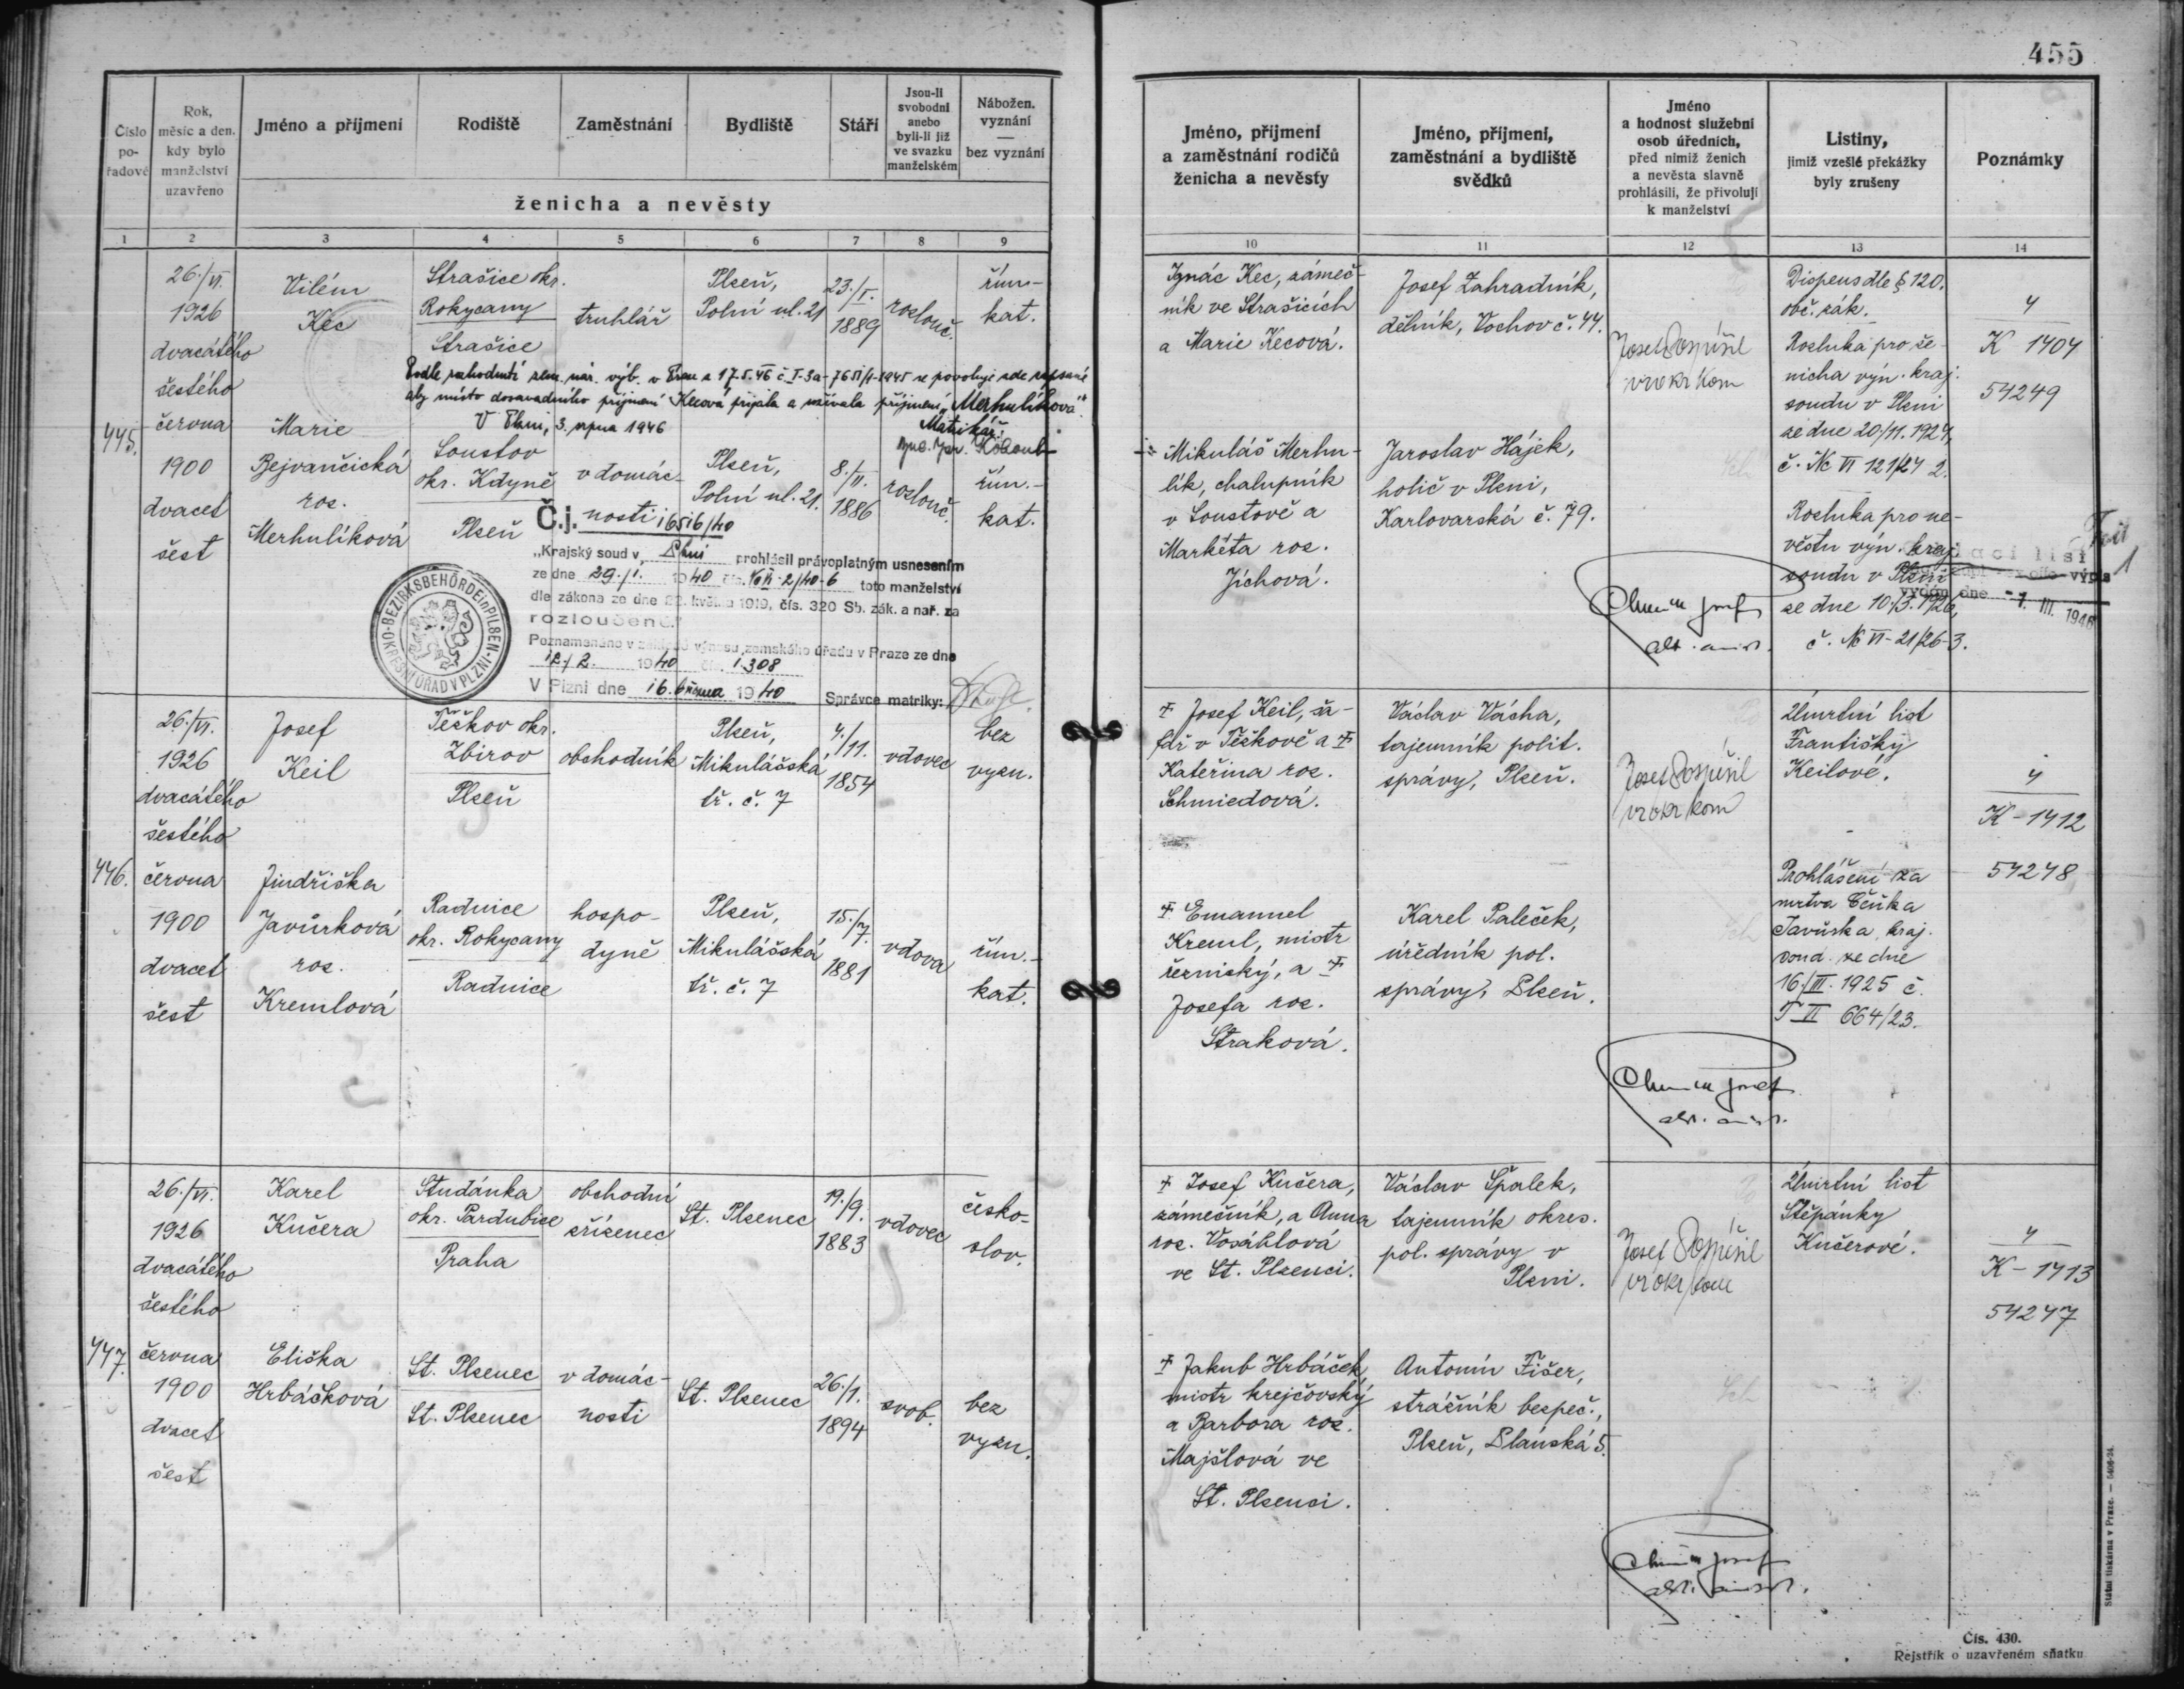 455
Číslo pořadové
Rok, měsíc a den, kdy bylo manželství uzavřeno
Jméno a příjmení
Rodiště
Zaměstnání
Bydliště
Stáří
Jsou-li svobodni anebo byli-li již ve svazku manželském
Nábožen. vyznání — bez vyznání
ženicha a nevěsty
Jméno, příjmení a zaměstnání rodičů ženicha a nevěsty
Jméno, příjmení, zaměstnání a bydliště svědků
Jméno a hodnost služební osob úředních, před nimiž ženich a nevěsta slavně prohlásili, že přivolují k manželství
Listiny, jimiž vzešlé překážky byly zrušeny
Poznámky
1 2 3 4 5 6 7 8 9 10 11 12 13 14
445.
26./VI.
1926
dvacátého
šestého
června
1900
dvacet
šest
Vilém
Kec
Strašice okr.
Rokycany
Strašice
truhlář
Plzeň,
Polní ul. 21
23./I.
1889
rozlouč.
řím.-
kat.
Podle rozhodnutí zem. nár. výb. v Praze z 17.5.46 č. I-3a-7651/4-1945 se povoluje zde zapsané
aby místo dosavadního příjmení Kecová přijala a užívala příjmení „Merhulíková“.
V Plzni, 3. srpna 1946
Matrikář:
Marie
Bejvančická
roz.
Merhulíková
Loustov
okr. Kdyně
Plzeň
v domác-
nosti
Plzeň,
Polní ul. 21.
8./II.
1886
rozlouč.
řím.-
kat.
Č.j. 16516/40
„Krajský soud v Plzni prohlásil právoplatným usnesením
ze dne 29./1. 1940 toto manželství
dle zákona ze dne 22. května 1919, čís. 320 Sb. zák. a nař. za
rozloučené.“
Poznamenáno v základě výnosu zemského úřadu v Praze ze dne
12./2. 1940 čís. 1.308
V Plzni dne 16. března 1940 Správce matriky:
BEZIRKSBEHÖRDE in PILSEN · OKRESNÍ ÚŘAD V PLZNI
Ignác Kec, zámeč-
ník ve Strašicích
a Marie Kecová.
Josef Zahradník,
dělník, Vochov č. 44.
Josef Pospíšil
vr okr kom
Dispens dle § 120.
obč. zák.
Rozluka pro že-
nicha výn. kraj.
soudu v Plzni
ze dne 20/11. 1924,
č. Nc VI 121/24 2.
4
K 1404
54249
Mikuláš Merhu-
lík, chalupník
v Loustově a
Markéta roz.
Jíchová.
Jaroslav Hájek,
holič v Plzni,
Karlovarská č. 79.
Rozluka pro ne-
věstu výn. kraj.
soudu v Plzni
ze dne 10./3. 1926,
č. Nc VI-21/26-3.
vydán dne -1. III. 1946
446.
26./VI.
1926
dvacátého
šestého
června
1900
dvacet
šest
Josef
Keil
Těškov okr.
Zbirov
Plzeň
obchodník
Plzeň,
Mikulášská
tř. č. 7
4./11.
1854
vdovec
bez
vyzn.
Jindřiška
Javůrková
roz.
Kremlová
Radnice
okr. Rokycany
Radnice
hospo-
dyně
Plzeň,
Mikulášská
tř. č. 7
15./7.
1881
vdova
řím.-
kat.
Josef Keil, ša-
fář v Těškově a
Kateřina roz.
Schmiedová.
Václav Vácha,
tajemník polit.
správy, Plzeň.
Josef Pospíšil
vr okr kom
Úmrtní list
Františky
Keilové.
4
K-1412
54248
Emanuel
Kreml, mistr
řeznický, a
Josefa roz.
Straková.
Karel Paleček,
úředník pol.
správy, Plzeň.
Prohlášení za
mrtva Čeňka
Javůrka, kraj.
soud. ze dne
16./III. 1925 č.
T VI 664/23.
447.
26./VI.
1926
dvacátého
šestého
června
1900
dvacet
šest
Karel
Kučera
Studánka
okr. Pardubice
Praha
obchodní
zřízenec
St. Plzenec
19./9.
1883
vdovec
česko-
slov.
Eliška
Hrbáčková
St. Plzenec
St. Plzenec
v domác-
nosti
St. Plzenec
26./1.
1894
svob.
bez
vyzn.
Josef Kučera,
zámečník, a Anna
roz. Vosáhlová
ve St. Plzenci.
Václav Špalek,
tajemník okres.
pol. správy v
Plzni.
Josef Pospíšil
vr okr kom
Úmrtní list
Štěpánky
Kučerové.
4
K-1413
54247
Jakub Hrbáček,
mistr krejčovský
a Barbora roz.
Majšlová ve
St. Plzenci.
Antonín Fišer,
strážník bezpeč.,
Plzeň, Slanská 5.
Státní tiskárna v Praze. — 5406-24.
Čís. 430.
Rejstřík o uzavřeném sňatku